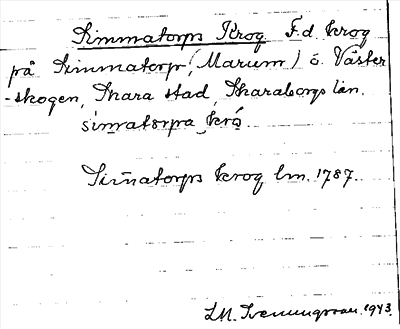 Simmatorps Krog F.d. krog
på Simmatorp (Marum) å Väster
-skogen, Skara stad, Skaraborgs län.
simatorpa krå
Sim̄atorps krog lm. 1787.
1943.